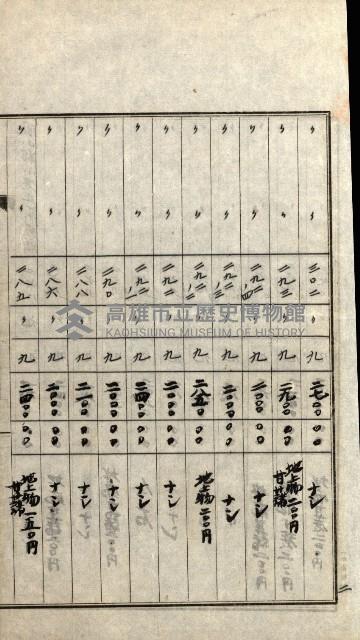 〃 〃 三〇二 〃 九 二七〇〇 〇〇 ナシ
〃 〃 二九三 〃 九 一九〇〇 〇〇 地上物 二〇〇円 甘藷
〃 〃 〃 九 〇〇 ナシ
〃 〃 〃 九 二〇〇〇 〇〇 ナシ
〃 〃 〃 九 〇〇 地上物 二〇〇円
〃 〃 〃 九 二〇〇〇 〇〇 ナシ
〃 〃 〃 九 二四〇〇 〇〇 ナシ
〃 〃 二九〇 〃 九 二〇〇〇 〇〇 ナシ
〃 〃 二八八 〃 九 二一〇〇 〇〇 ナシ
〃 〃 二八六 〃 九 二〇〇〇 〇〇 ナシ
〃 〃 二八五 〃 九 二四〇〇 〇〇 地上物 一五〇円 甘藷
高雄市立歷史博物館
KAOHSIUNG MUSEUM OF HISTORY